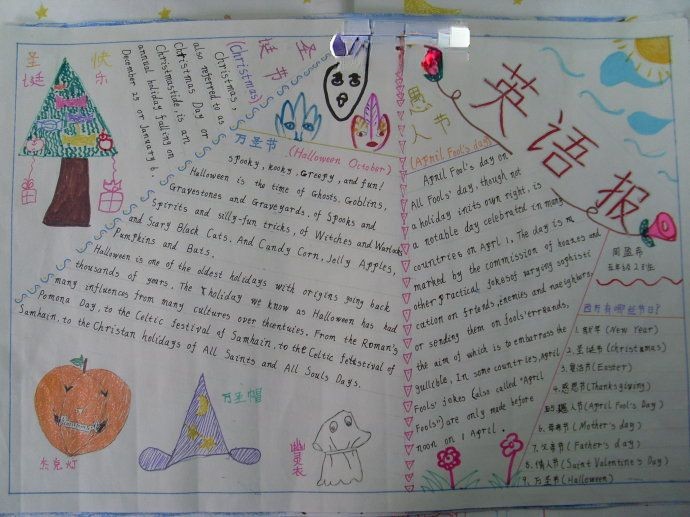 英语报
圣诞
快乐
圣诞节
(Christmas)
Christmas,
also referred to as
Christmas Day or
Christmastide, is an
annual holiday falling on
December 25 or January 6.
万圣节
(Halloween October)
spooky, kooky, creepy, and fun!
Halloween is the time of Ghosts, Goblins,
Gravestones and Graveyards. of Spooks and
Spirits and silly-fun tricks, of Witches and Warlocks
and Scary Black Cats. And Candy Corn, Jelly Apples,
Pumpkins and Bats.
Halloween is one of the oldest holidays with origins going back
thousands of years. The holiday we know as Halloween has had
many influences from many cultures over the
From the Roman's
Pomona Day, to the Celtic festival of Samhain, to the Celtic
of
Samhain, to the Christan holidays of All Saints and All Souls Days.
杰克灯
万圣帽
幽灵衣
愚人节
(April Fool's day)
April Fool's day on
All Fools' day, though not
a holiday inits own right, is
a notable day celebrated in many
countries on April 1, The day is m
marked by the commission of hoaxes and
other practical jokesof varying sophisti
cation on friends, enemies and naeighbors,
or sending them on fools'errands,
the aim of which is to embarrass the
gullible, In some countries, April
Fools' jokes (also called "April
Fools") are only made before
noon on 1 April.
西方有哪些节日?
1. 新年 (New Year)
2. 圣诞节 (christmas)
3. 复活节 (Easter)
4. 感恩节 (Thanksgiving)
5. 愚人节 (April Fool's Day)
6. 母亲节 (Mother's day)
7. 父亲节 (Father's day)
8. 情人节 (Saint Valentine's Day)
9. 万圣节 (Halloween)